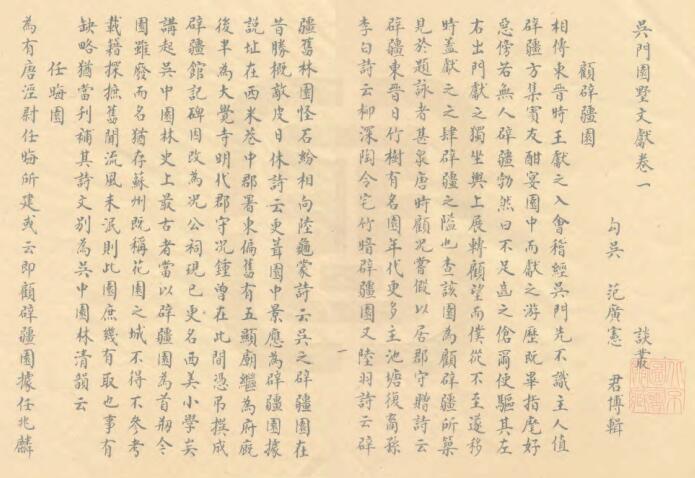 吳門園墅文獻卷一　談叢
勾吳　范廣憲　君博輯
顧辟疆園
相傳東晉時王獻之入會稽經吳門先不識主人值
辟疆方集賓友酣宴園中而獻之游歷既畢指麾好
惡傍若無人辟疆勃然曰不足齒之傖爾使驅其左
右出門獻之獨坐輿上展轉顧望而僕從不至遂移
時蓋獻之之肆辟疆之隘也查該園為顧辟疆所築
見於題詠者甚泉唐時顧況嘗假以居郡守贈詩云
辟疆東晉日竹樹有名園年代更多主池塘復裔孫
李白詩云柳深陶令宅竹暗辟疆園又陸羽詩云辟
疆舊林園怪石紛相向陸龜蒙詩云吳之辟疆園在
昔勝概敵皮日休詩云更葺園中景應為辟疆園據
說址在西米巷中郡署東偏舊有五顯廟繼為府廐
後半為大覺寺明代郡守況鍾曾在此間憑吊撰成
辟疆館記碑因改為況公祠現已更名西美小學矣
講起吳中園林史上最古者當以辟疆園為首剏今
園雖廢而名猶存蘇州既稱花園之城不得不參考
載籍採撫舊聞流風未泯則此園庶幾有取也事有
缺略猶當刊補其詩文別為吳中園林清韻云
任晦園
為有唐涇尉任晦所建或云即顧辟疆園據任兆麟